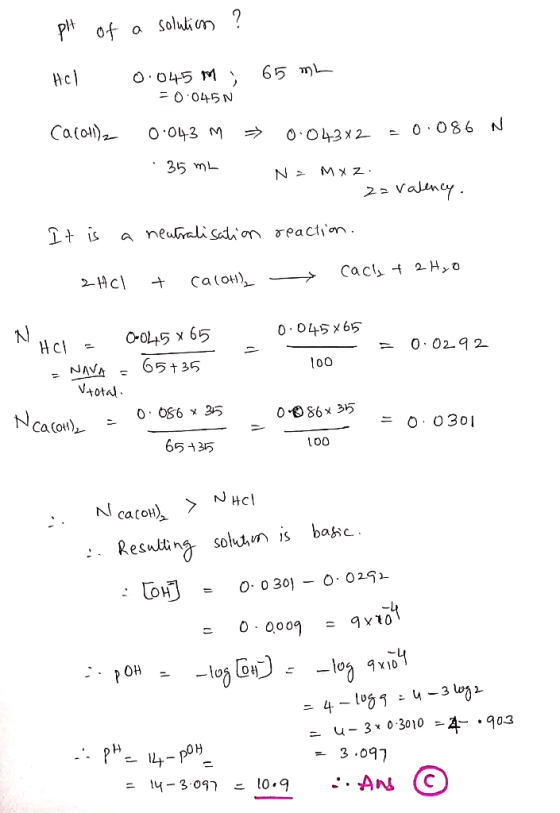 pH of a solution ?
HCl 0.045 M ; 65 mL
= 0.045 N
Ca(OH)₂ 0.043 M ⇒ 0.043×2 = 0.086 N
35 mL N = M×Z.
Z = valency.
It is a neutralisation reaction.
2HCl + Ca(OH)₂ → CaCl₂ + 2H₂O
N HCl = 0.045 × 65 / 65+35 = 0.045×65 / 100 = 0.0292
= NAVA / Vtotal.
N Ca(OH)₂ = 0.086 × 35 / 65+35 = 0.086×35 / 100 = 0.0301
∴ N Ca(OH)₂ > N HCl
∴ Resulting solution is basic.
∴ [OH⁻] = 0.0301 − 0.0292
= 0.0009 = 9×10⁻⁴
∴ pOH = −log [OH⁻] = −log 9×10⁻⁴
= 4 − log 9 = 4 − 3 log 2
= 4 − 3 × 0.3010 = 4 − .903
= 3.097
∴ pH = 14 − pOH =
= 14 − 3.097 = 10.9 ∴ Ans C